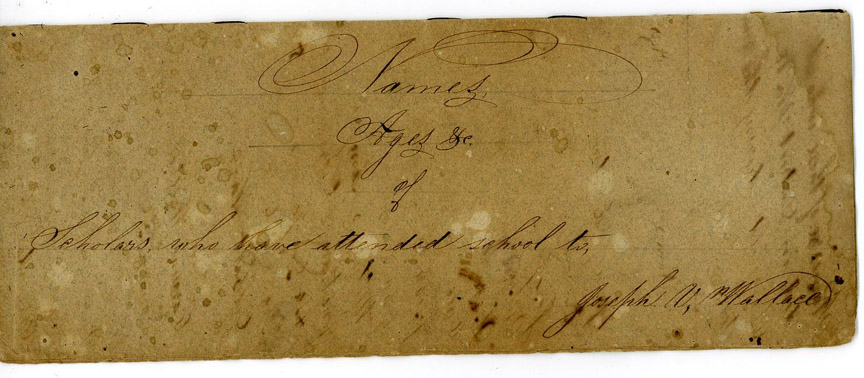 Names,
Ages &c.
of
Scholars who have attended school to,
Joseph V, Wallace